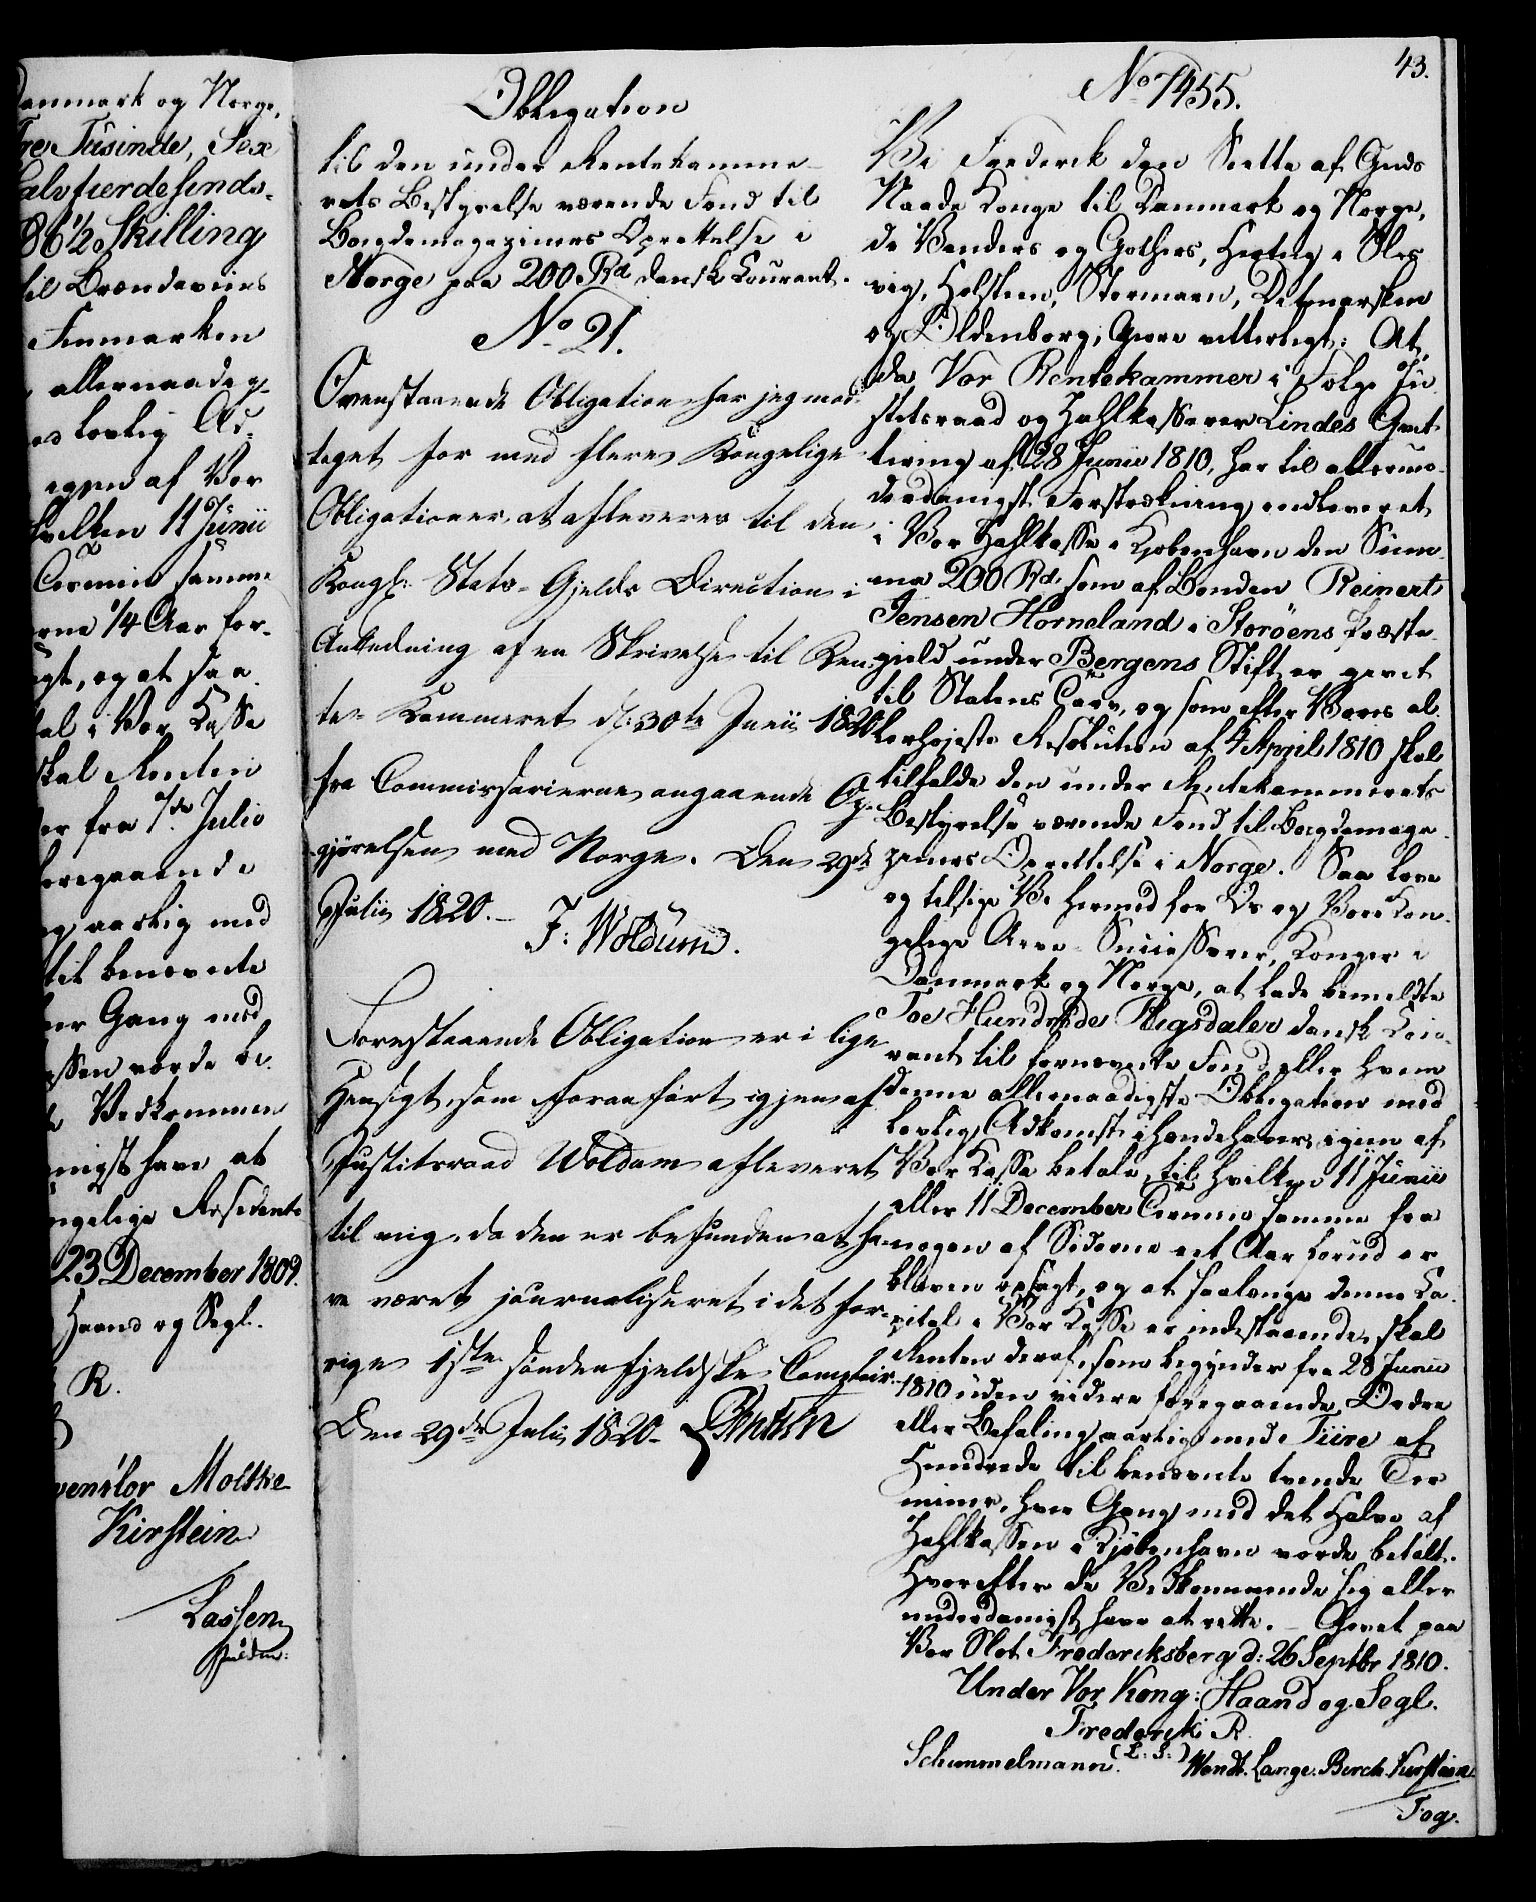 43.
Danmark og Norge,
Tre Tusinde, Sex
halvfierdesinds-
86 1/2 Skilling
til Brændeviins
Finmarken
allernaadig-
lovlig Ad-
egien af Vor
hvilken 11 Junii
Termin samme
1/4 Aar for-
sagt, og at saa
tal i Vor Kasse
skal Renten
er fra 7de Julio
foregaaende
og aarlig med
til benævnte
hver Gang med
assen vorde be-
Vedkommen
nigst have at
ngelige Residents
23 December 1809.
Haand og Segl.
R.
Moltke
Kirstein
Lassen
Obligation
til den under Rentekamme-
rets Bestyrelse værende Fond til
Bøigdemagaziners Oprettelse i
Norge paa 200 Rd dansk Courant.
No 21.
Ovenstaaende Obligation har jeg mod-
taget for med flere Kongelige
Obligationer at afleveres til den
Kongl: Stats-Gjelds Direction i
Anledning af en Skrivelse til Ren-
te-Kammeret d: 30te Junii 1820
fra Commissarierne angaaende Op-
gjørelsen med Norge. Den 29de
Julii 1820.
F: Woldum.
Forestaaende Obligation er i lige
Hensigt, som foranført igjen af
Justitsraad Woldum afleveret
til mig, da den er befunden at ha-
ve været journaliseret i det for-
rige 1ste søndenfjeldske Comptoir.
Den 29de Julii 1820.
No 1455.
Vi Frederik den Siette af Guds
Naade Konge til Danmark og Norge,
de Venders og Gothers, Hertug i Sles
vig, Holsteen, Stormarn, Ditmarsken
og Oldenborg; Giøre vitterligt: At,
da Vor Rentekammer i Følge Ju
stitsraad og Zahlkasserer Lindes Qvit
tering af 28 Junii 1810, har til allerun-
derdanigst Forstrækning indleveret
i Vor Zahlkasse i Kiøbenhavn den Sum-
ma 200 Rd, som af Bonden Reinert
Jensen Horneland i Storöens Præste-
gield under Bergens Stift er givet
til Statens Tarv, og som efter Vores al-
lerhøieste Resolution af 4 April 1810 skal
tilfalde den under Rentekammerets
Bestyrelse værende Fond til Bøigdemaga-
ziners Oprettelse i Norge. Saa love
og tilsige Vi hermed for Os og Vore Kon-
gelige Arve-Successorer, Konger i
Danmark og Norge, at lade bemeldte
Toe Hundrede Rigsdaler dansk Cou-
rant til fornævnte Fond eller hvem
denne allernaadigste Obligation med
lovlig Adkomst ihændehaver, igien af
Vor Kasse betale, til hvilken 11 Junii
eller 11 December Termin samme fra
nogen af Siderne eet Aar forud er
bleven opsagt, og at saalænge denne Ca-
pital i Vor Kasse er indestaaende, skal
Renten deraf, som begynder fra 28 Junii
1810 uden videre foregaaende Ordre
eller Befaling aarlig med Fiire af
Hundrede til benævnte tvende Ter
miner, hver Gang med det Halve af
Zahlkassen i Kjøbenhavn vorde betalt.
Hvorefter de Vedkommende sig aller
underdanigst have at rette. Givet paa
Vor Slot Fredericksberg d: 26 Septbr 1810.
Under Vor Kong: Haand og Segl.
Frederik R.
(L: S:)
Schimmelmann. Wendt. Lange. Birch. Kirstein
Fog.